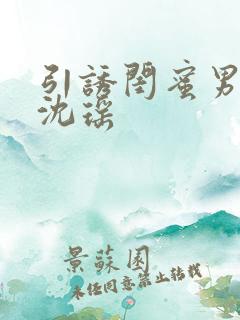 引誘閏蜜男
沈瑶
景蘇園
未经同意禁止转载